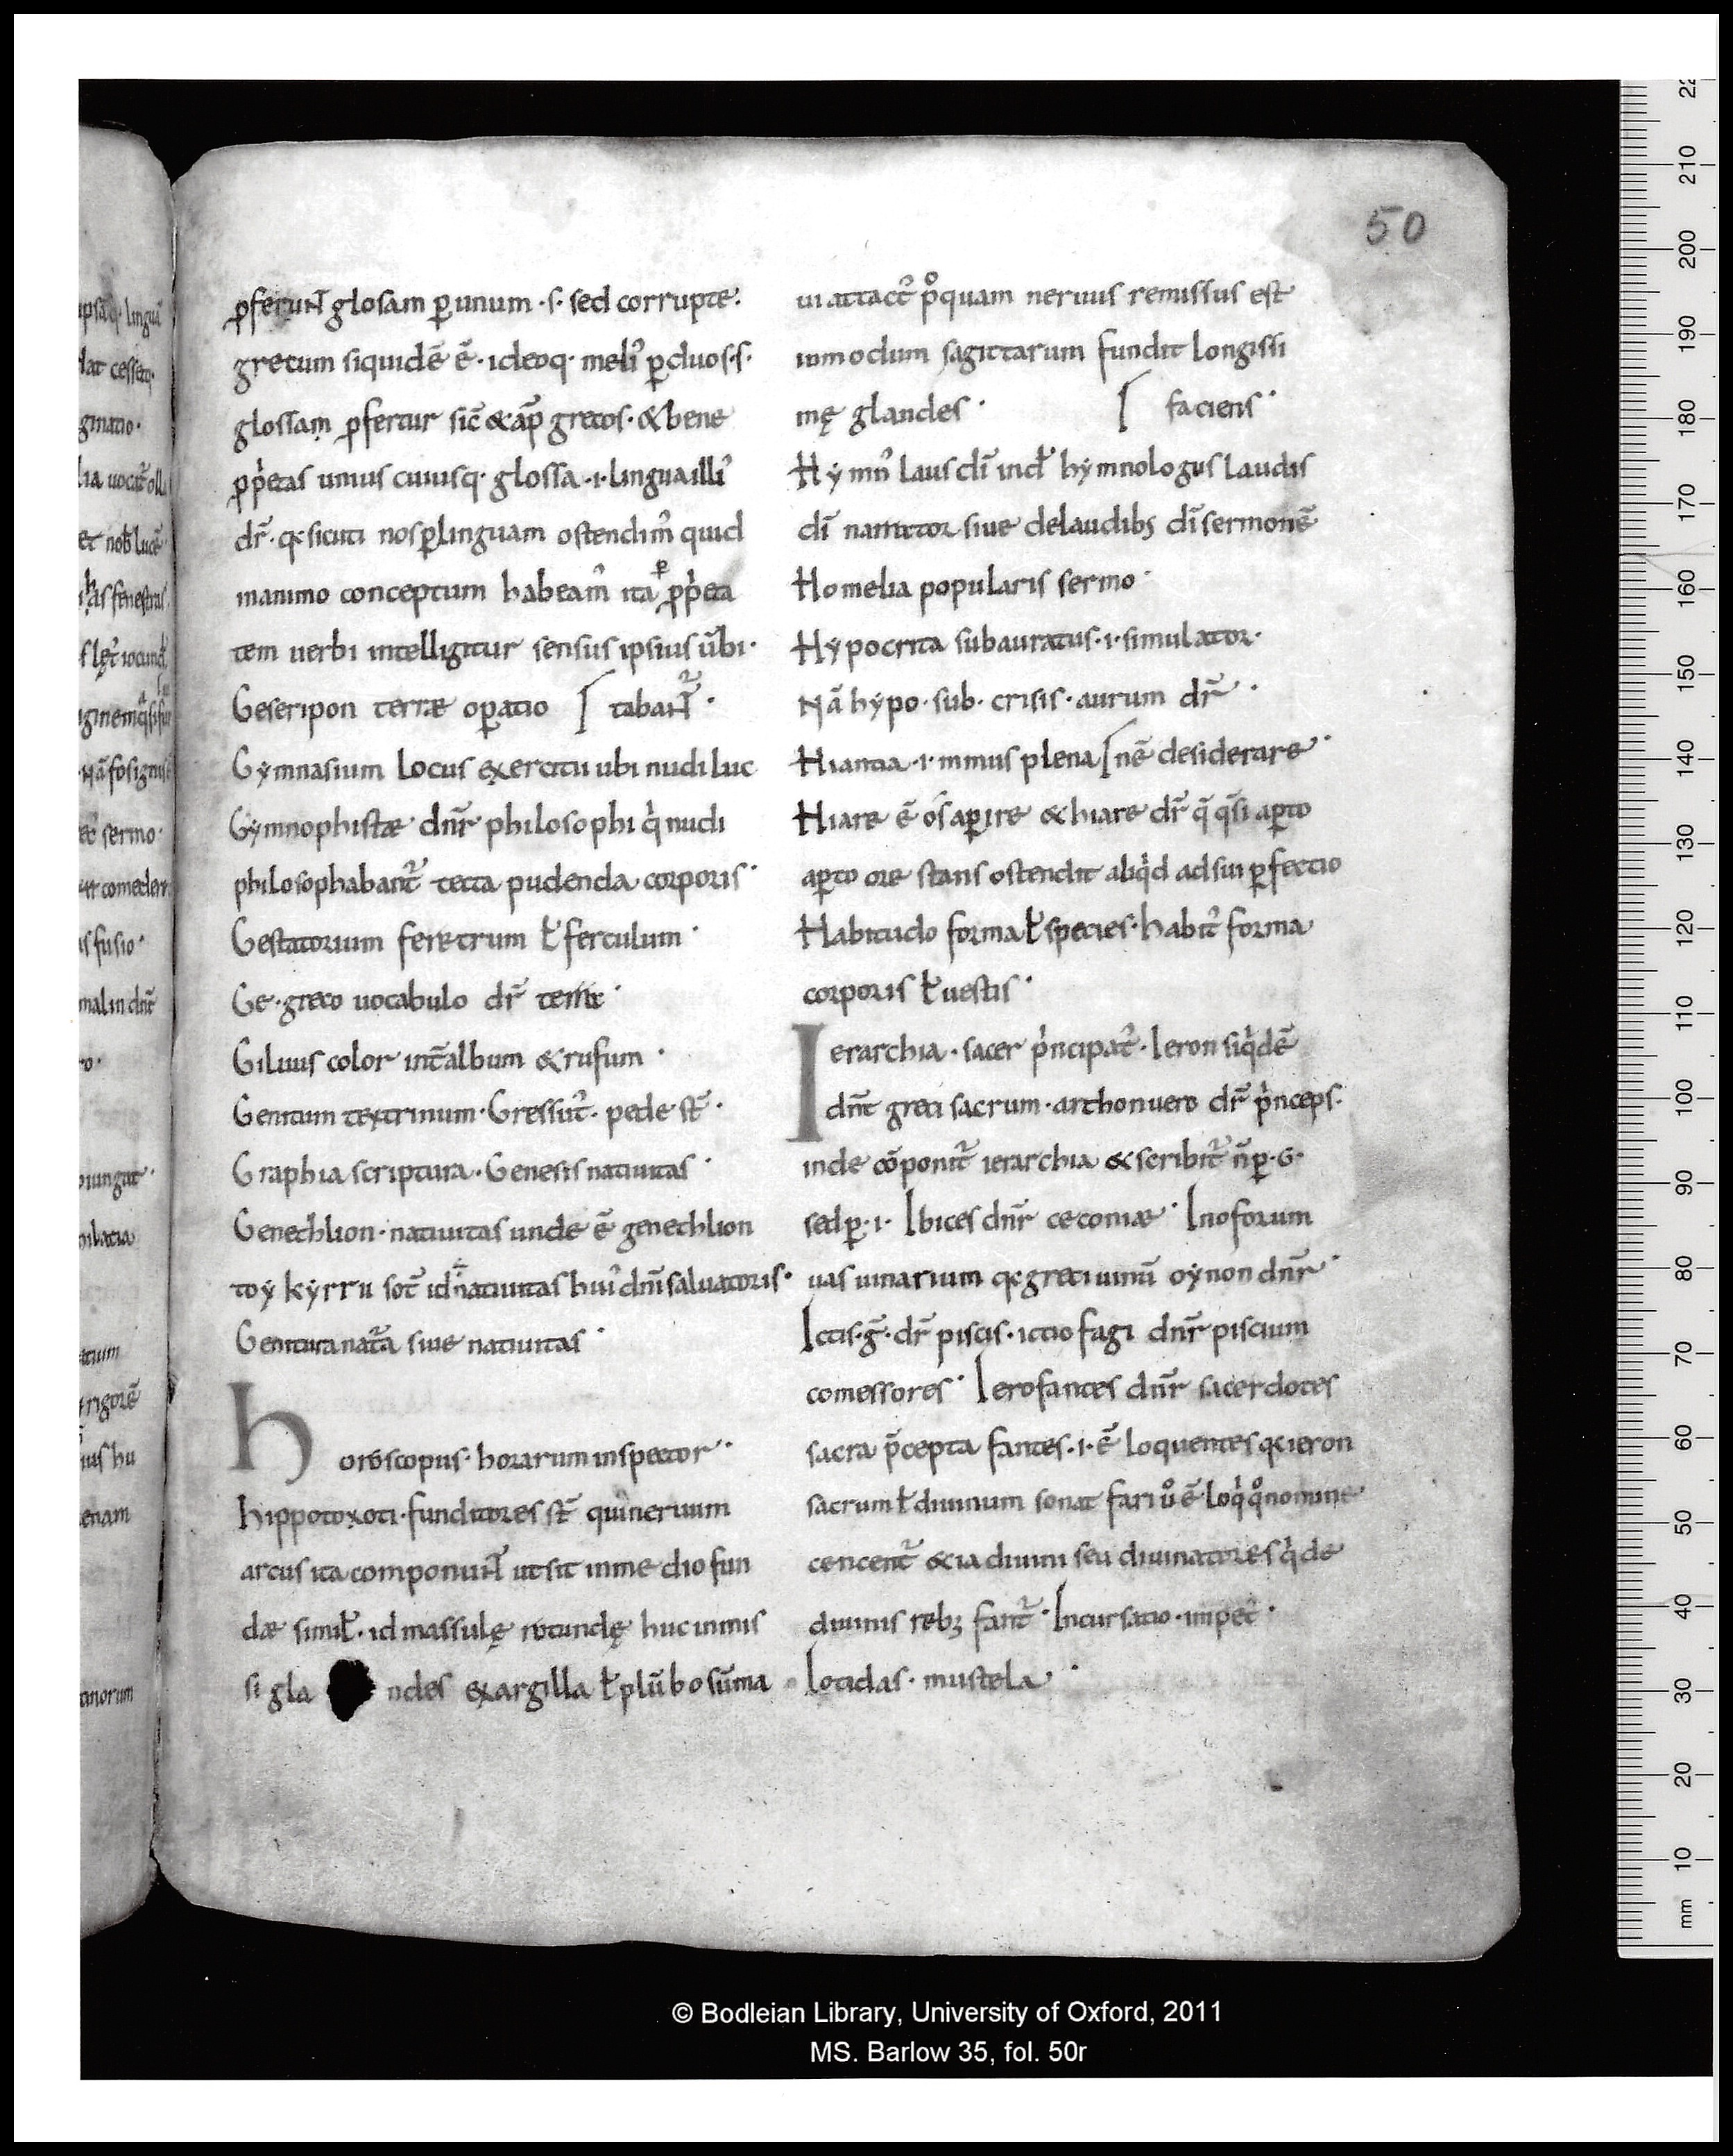 50
ꝓferunt glosam ꝑ unum ·s· sed corrupte·
grecum siquidē ē· ideoq· meliꝰ ꝑ duos ·s·
glossam ꝓfertur sic̄ & ap̄ grecos· & bene
ꝓpͥetas unius cuiusq· glossa ·i· lingua illiꝰ
dr̄· q· sicuti nos ꝑ linguam ostendimꝰ quid
in animo conceptum habeamꝰ ita ꝑ ꝓpͥeta
tem uerbi intelligitur sensus ipsius ūbi·
Geseripon terræ oꝑatio [ tabant᷑ ·
Gymnasium locus exercitii ubi nudi luc
Gymnophistæ dnr̄ philosophi qͥ nudi
philosophabant᷑ tecta pudenda corporis·
Gestatorium feretrum ł ferculum·
Ge· greco uocabulo dr̄ terræ·
Giluus color int̄ album & rufum ·
Genitum textrinum· Gressut᷑· pede st̄ ·
Graphia scriptura· Genesis natiuitas ·
Genethlion· natiuitas unde ē genethlion
toy kyrru sot᷑ id ÷ natiuitas huiꝰ dn̄i saluatoris·
Genitura nat᷑a siue natiuitas ·
horoscopus· horarum inspector·
hippotoxoti· funditores st̄ qui neruum
arcus ita componunt ut sit in medio fun
dæ simił· id massulę rotundę huc inmis
si gla ndes ex argilla ł plūbo sūma
ui attact᷑ pͦquam neruus remissus est
in modum sagittarum fundit longissi
mę glandes · [ faciens ·
Hymnꝰ laus dī ind̵ hymnologus laudis
dī narrator siue de laudibꝫ dī sermonē
Homelia popularis sermo ·
Hypocrita subauratus ·i· simulator·
Nā hypo· sub· crisis· aurum dr̄ ·
Hiantia ·i· minus plena [ nē desiderare ·
Hiare ē os aꝑire & hiare dr̄ q̄ q̄si aꝑto
aꝑto ore stans ostendit aliqͥd ad sui ꝑfectio
Habitudo forma ł species· habitꝰ forma
corporis ł uestis ·
Ierarchia· sacer pͥncipatꝰ· Ieron siqͥdē
dn̄t greci sacrum· archon uero dr̄ pͥnceps·
inde cōponit᷑ ierarchia & scribit᷑ n̄ ꝑ ·G·
sed ꝑ ·i· Ibices dnr̄ ceconiæ · Inoforum
uas uinarium q· greci uinū oynon dnr̄ ·
Ictis· ḡ· dr̄ piscis· ictiofagi dnr̄ piscium
comessores · Ierofantes dnr̄ sacerdotes
sacra p̄cepta fantes ·i· ē loquentes q· ieron
sacrum ł diuinum sonat fari uͦ ē loqͥ qͦ nomine
cencent᷑ & ia diuini seu diuinatores qͥ de
diuinis rebꝫ fant᷑ · Incursatio· impetꝰ ·
Iotidas· mustela ·
© Bodleian Library, University of Oxford, 2011
MS. Barlow 35, fol. 50r